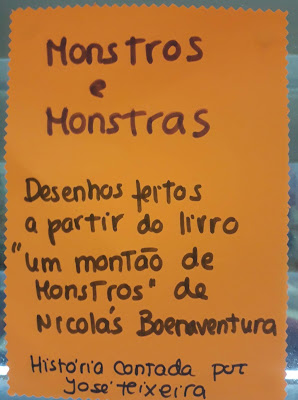 Monstros
e
Monstras
Desenhos feitos
a partir do livro
"um montão de
Monstros" de
Nicolás Boenaventura
História contada por
José Teixeira